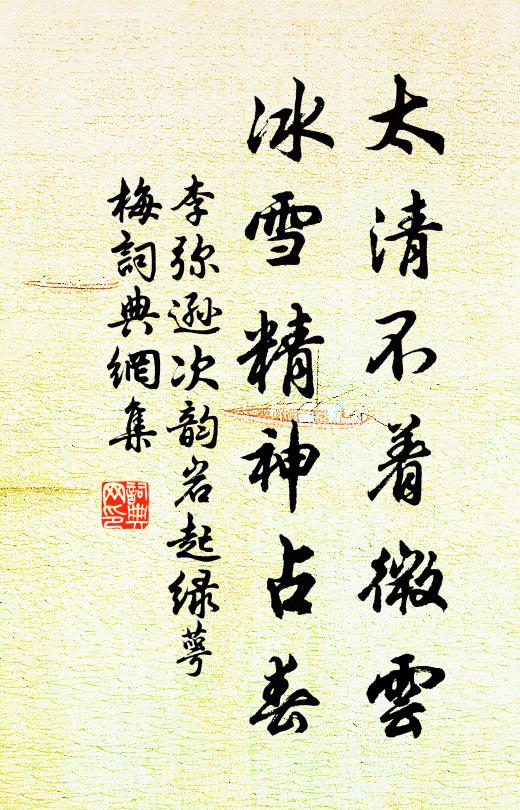 太清不着微雲
冰雪精神占春
李弥遜次韵岩起绿萼
梅詞典網集
詞典
网印